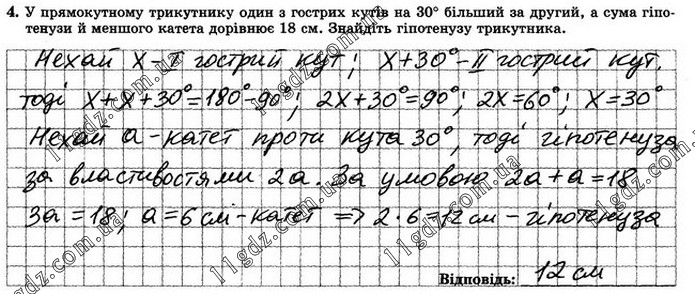 4. У прямокутному трикутнику один з гострих кутів на 30° більший за другий, а сума гіпо-
тенузи й меншого катета дорівнює 18 см. Знайдіть гіпотенузу трикутника.
Нехай x - I гострий кут; x+30° - II гострий кут.
тоді x+x+30°=180°-90°; 2x+30°=90°; 2x=60°; x=30°
Нехай a - катет проти кута 30°, тоді гіпотенуза
за властивостями 2a. За умовою 2a+a=18
3a=18; a=6 см - катет => 2·6=12 см - гіпотенуза
Відповідь: 12 см
11gdz.com.ua